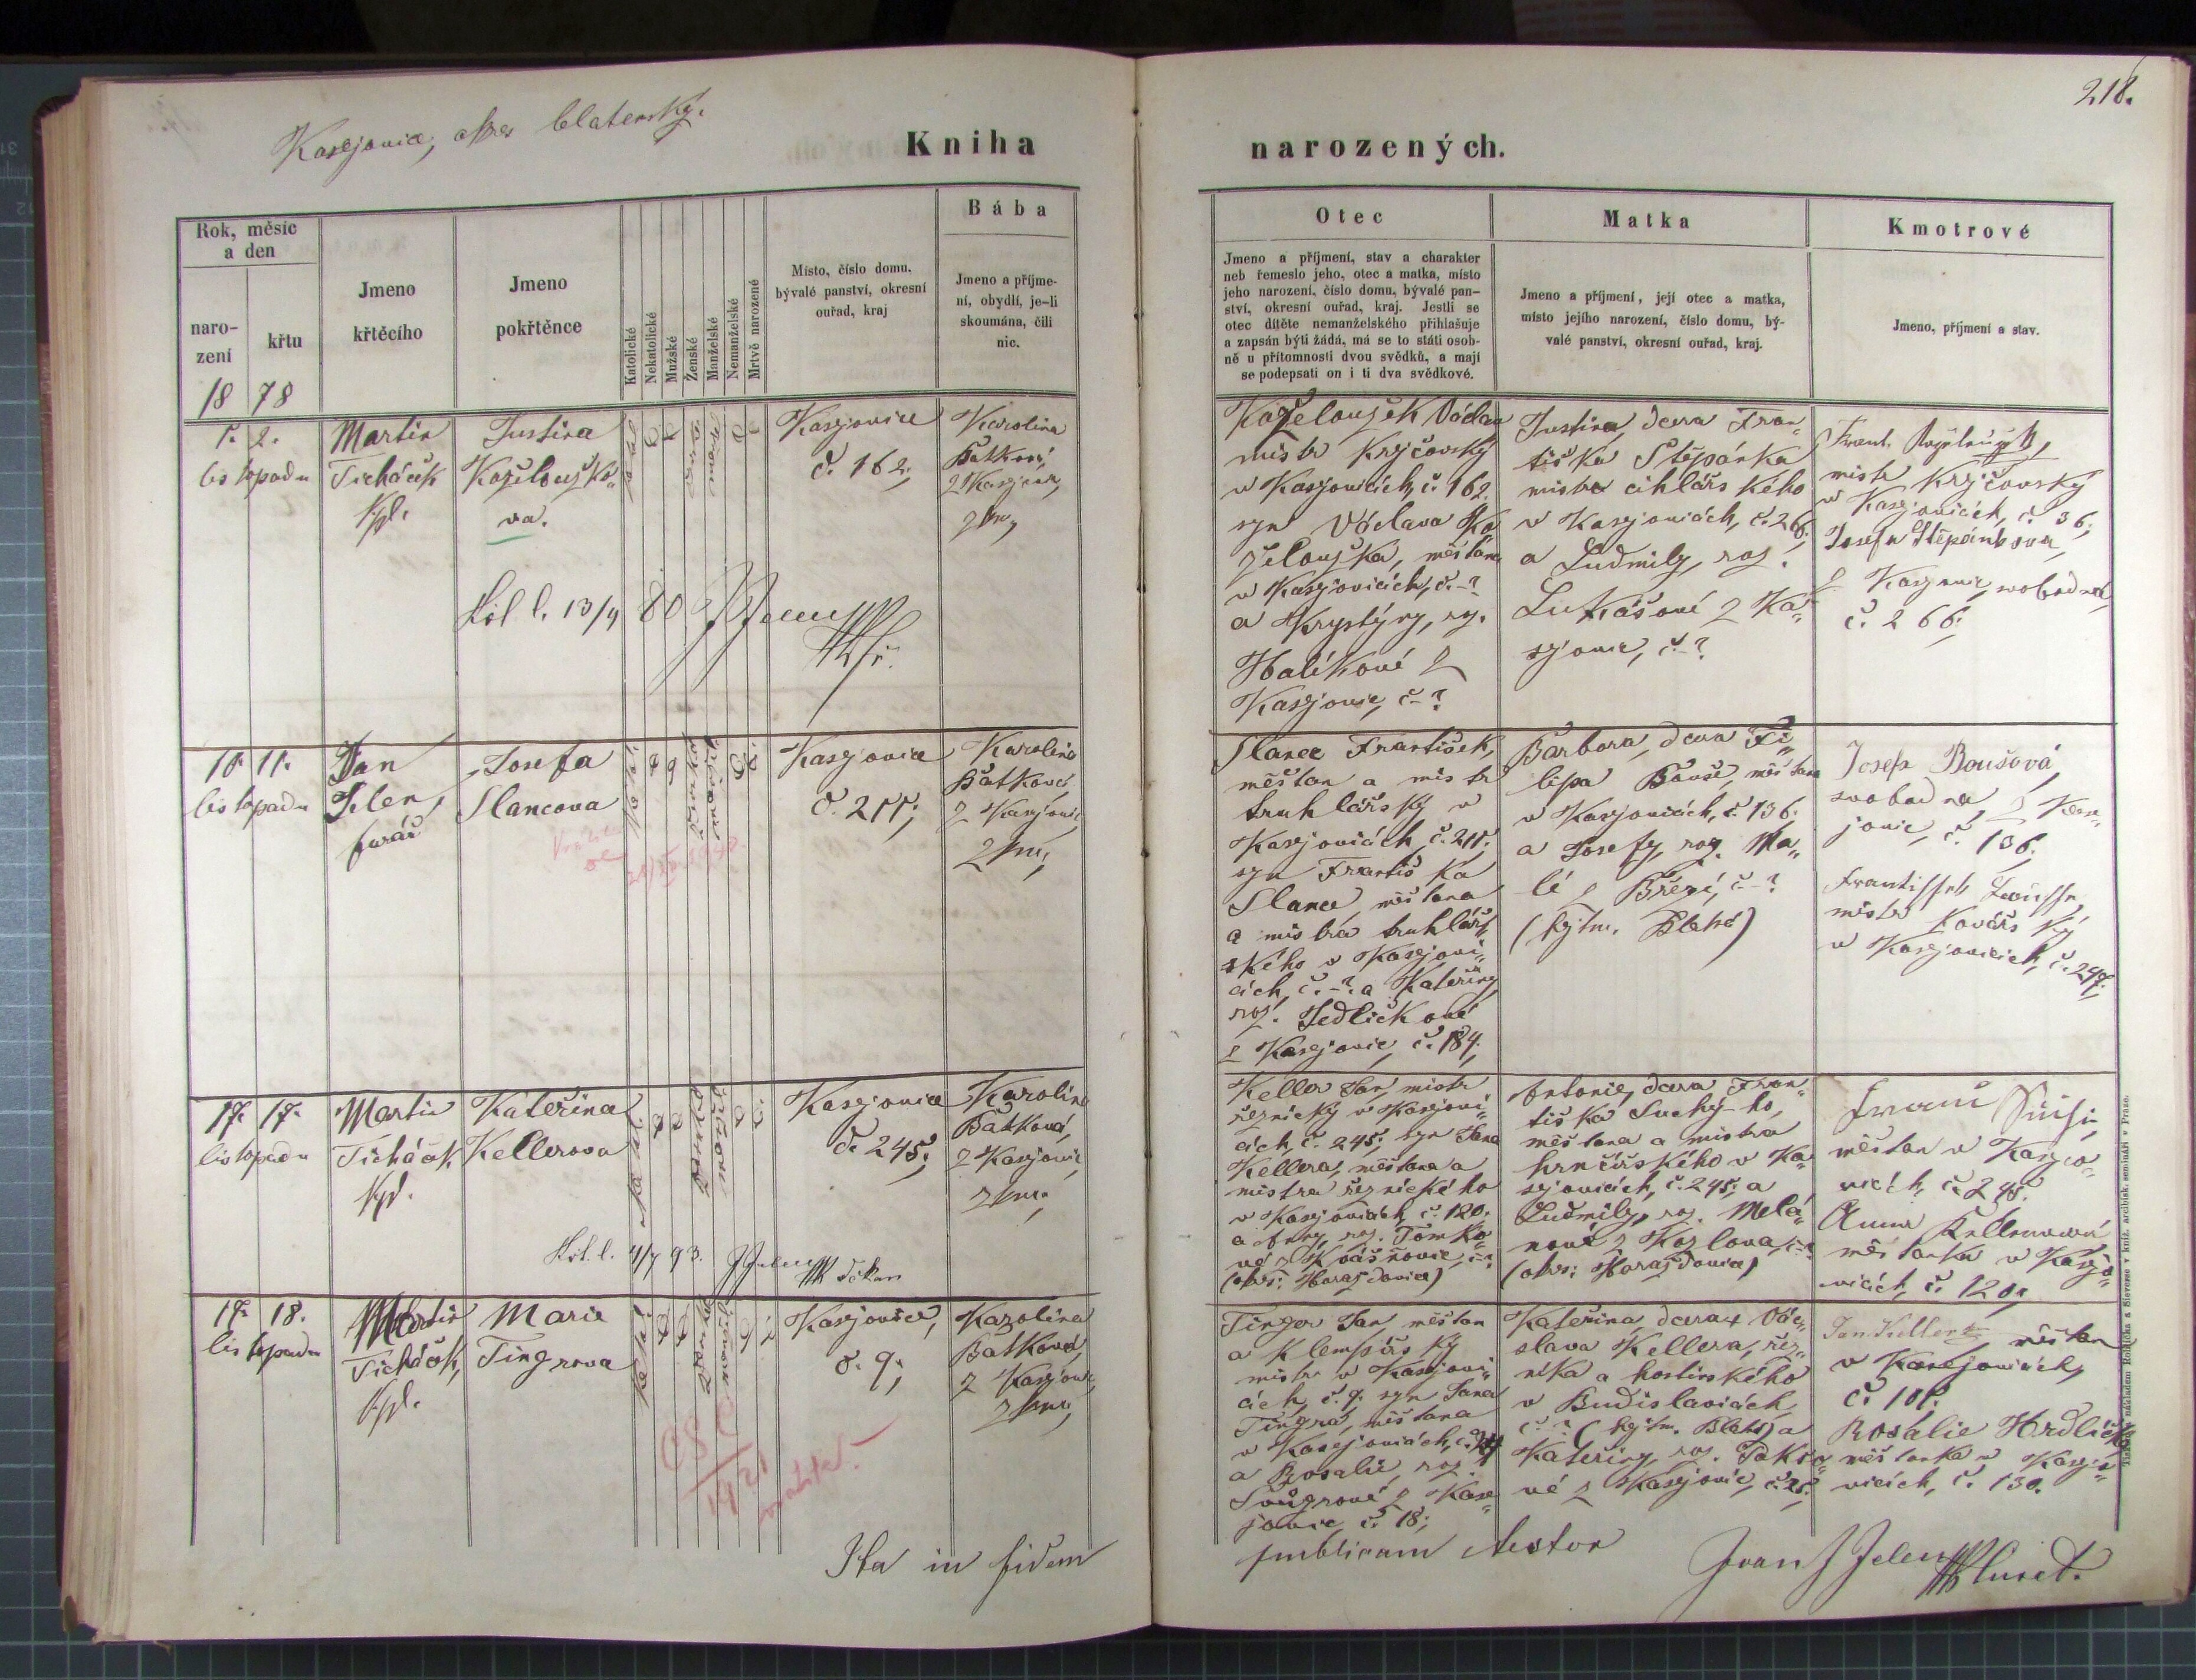 218.
Kasejovice, okres blatenský.
Kniha narozených.
Rok, měsíc
a den
naro-
zení
křtu
18 78
Jmeno
křtěcího
Jmeno
pokřtěnce
Katolické
Nekatolické
Mužské
Ženské
Manželské
Nemanželské
Mrtvě narozené
Místo, číslo domu,
bývalé panství, okresní
ouřad, kraj
Bába
Jmeno a příjme-
ní, obydlí, je-li
skoumána, čili
nic.
Otec
Jmeno a příjmení, stav a charakter
neb řemeslo jeho, otec a matka, místo
jeho narození, číslo domu, bývalé pan-
ství, okresní ouřad, kraj. Jestli se
otec dítěte nemanželského přihlašuje
a zapsán býti žádá, má se to státi osob-
ně u přítomnosti dvou svědků, a mají
se podepsati on i ti dva svědkové.
Matka
Jmeno a příjmení, její otec a matka,
místo jejího narození, číslo domu, bý-
valé panství, okresní ouřad, kraj.
Kmotrové
Jmeno, příjmení a stav.
1. 2.
listopadu
Martin
Ticháček
Kpl.
Justina
Koželouzko-
va.
Kasejovice
č. 162;
Karolina
Batková,
z Kasejovic,
zkm,
Koželouzek Václav
mistr krejčovský
v Kasejovicích, č. 162.
syn Václava Ko
želouzka, měšťana
v Kasejovicích, č.-?
a Krystýny, roz.
Halíkové z
Kasejovic, č-?
Justina, dcera Fran-
tiška Štěpánka
mistra cihlářského
v Kasejovicích, č. 266;
a Ludmily, roz.
Lukášové z Ka-
sejovic, č-?
mistr Krejčovský
v Kasejovicích, č. 36;
Josefa Štěpánkova
z Kasejovic, svobodná,
č. 266;
13/9 80
10. 11.
listopadu
Jan
Jelen,
farář
Josefa
Slancova
Kasejovice
č. 211;
Karolina
Batková,
z Kasejovic
zkm,
Slanec František,
měšťan a mistr
truhlářský v
Kasejovicích č. 211;
syn Františka
Slance měšťana
a mistra truhlář-
ského v Kasejovi-
cích, č.-? a Kateřiny
roz. Jedličkové
z Kasejovic, č. 184;
Barbora, dcera Fi-
lipa Bouše, měšťana
v Kasejovicích, č. 136.
a Josefy, roz. Ma-
lé z Březí, č-?
(hejtm. Blatná)
Josefa Boušová,
svobodná z Kase-
jovic, č. 136;
mistr kovářský
v Kasejovicích, č. 247;
17. 17.
listopadu
Martin
Ticháček
Kpl.
Kateřina
Kellerova
Kasejovice
č. 245;
Karolina
Batková,
z Kasejovic
zkm,
Keller Jan, mistr
řeznický v Kasejovi-
cích č. 245; syn Jana
Kellera, měšťana a
mistra řeznického
v Kasejovicích č. 120.
a Anny, roz. Tomko-
vé z Kvášňovic, č-?
(okr: Horažďovice)
Antonie, dcera Fran-
tiška Suchý-ho,
měšťana a mistra
hrnčířského v Ka-
sejovicích, č. 245; a
Ludmily, roz. Melá-
nové z Kozlova, č-?
(okr: Horažďovice)
měšťan v Kasejo-
vicích, č. 245.
Anna Kellerová
měšťanka v Kasejo-
vicích, č. 120;
4/7 93.
děkan
17. 18.
listopadu
Martin
Ticháček,
Kpl.
Marie
Tingrova
Kasejovice,
č. 9;
Karolina
Batková,
z Kasejovic,
zkm,
Tinger Jan, měšťan
a klempířský
mistr v Kasejovi-
cích, č. 9; syn Jana
Tingra, měšťana
v Kasejovicích,
a Rosalie, roz.
z Kase-
jovic, č. 18;
Kateřina, dcera Vác-
slava Kellera, řez-
níka a hostinského
v Budislavicích,
č-? (hejtm. Blatná) a
Kateřiny, roz.
vé z Kasejovic, č. 25;
Jan Keller, měšťan
v Kasejovicích,
č. 101.
Rosalie Hrdličk
měšťanka v Kasejo-
vicích, č. 130.
CSC
1921
Ita in fidem
publicam testor
Joan Jelen